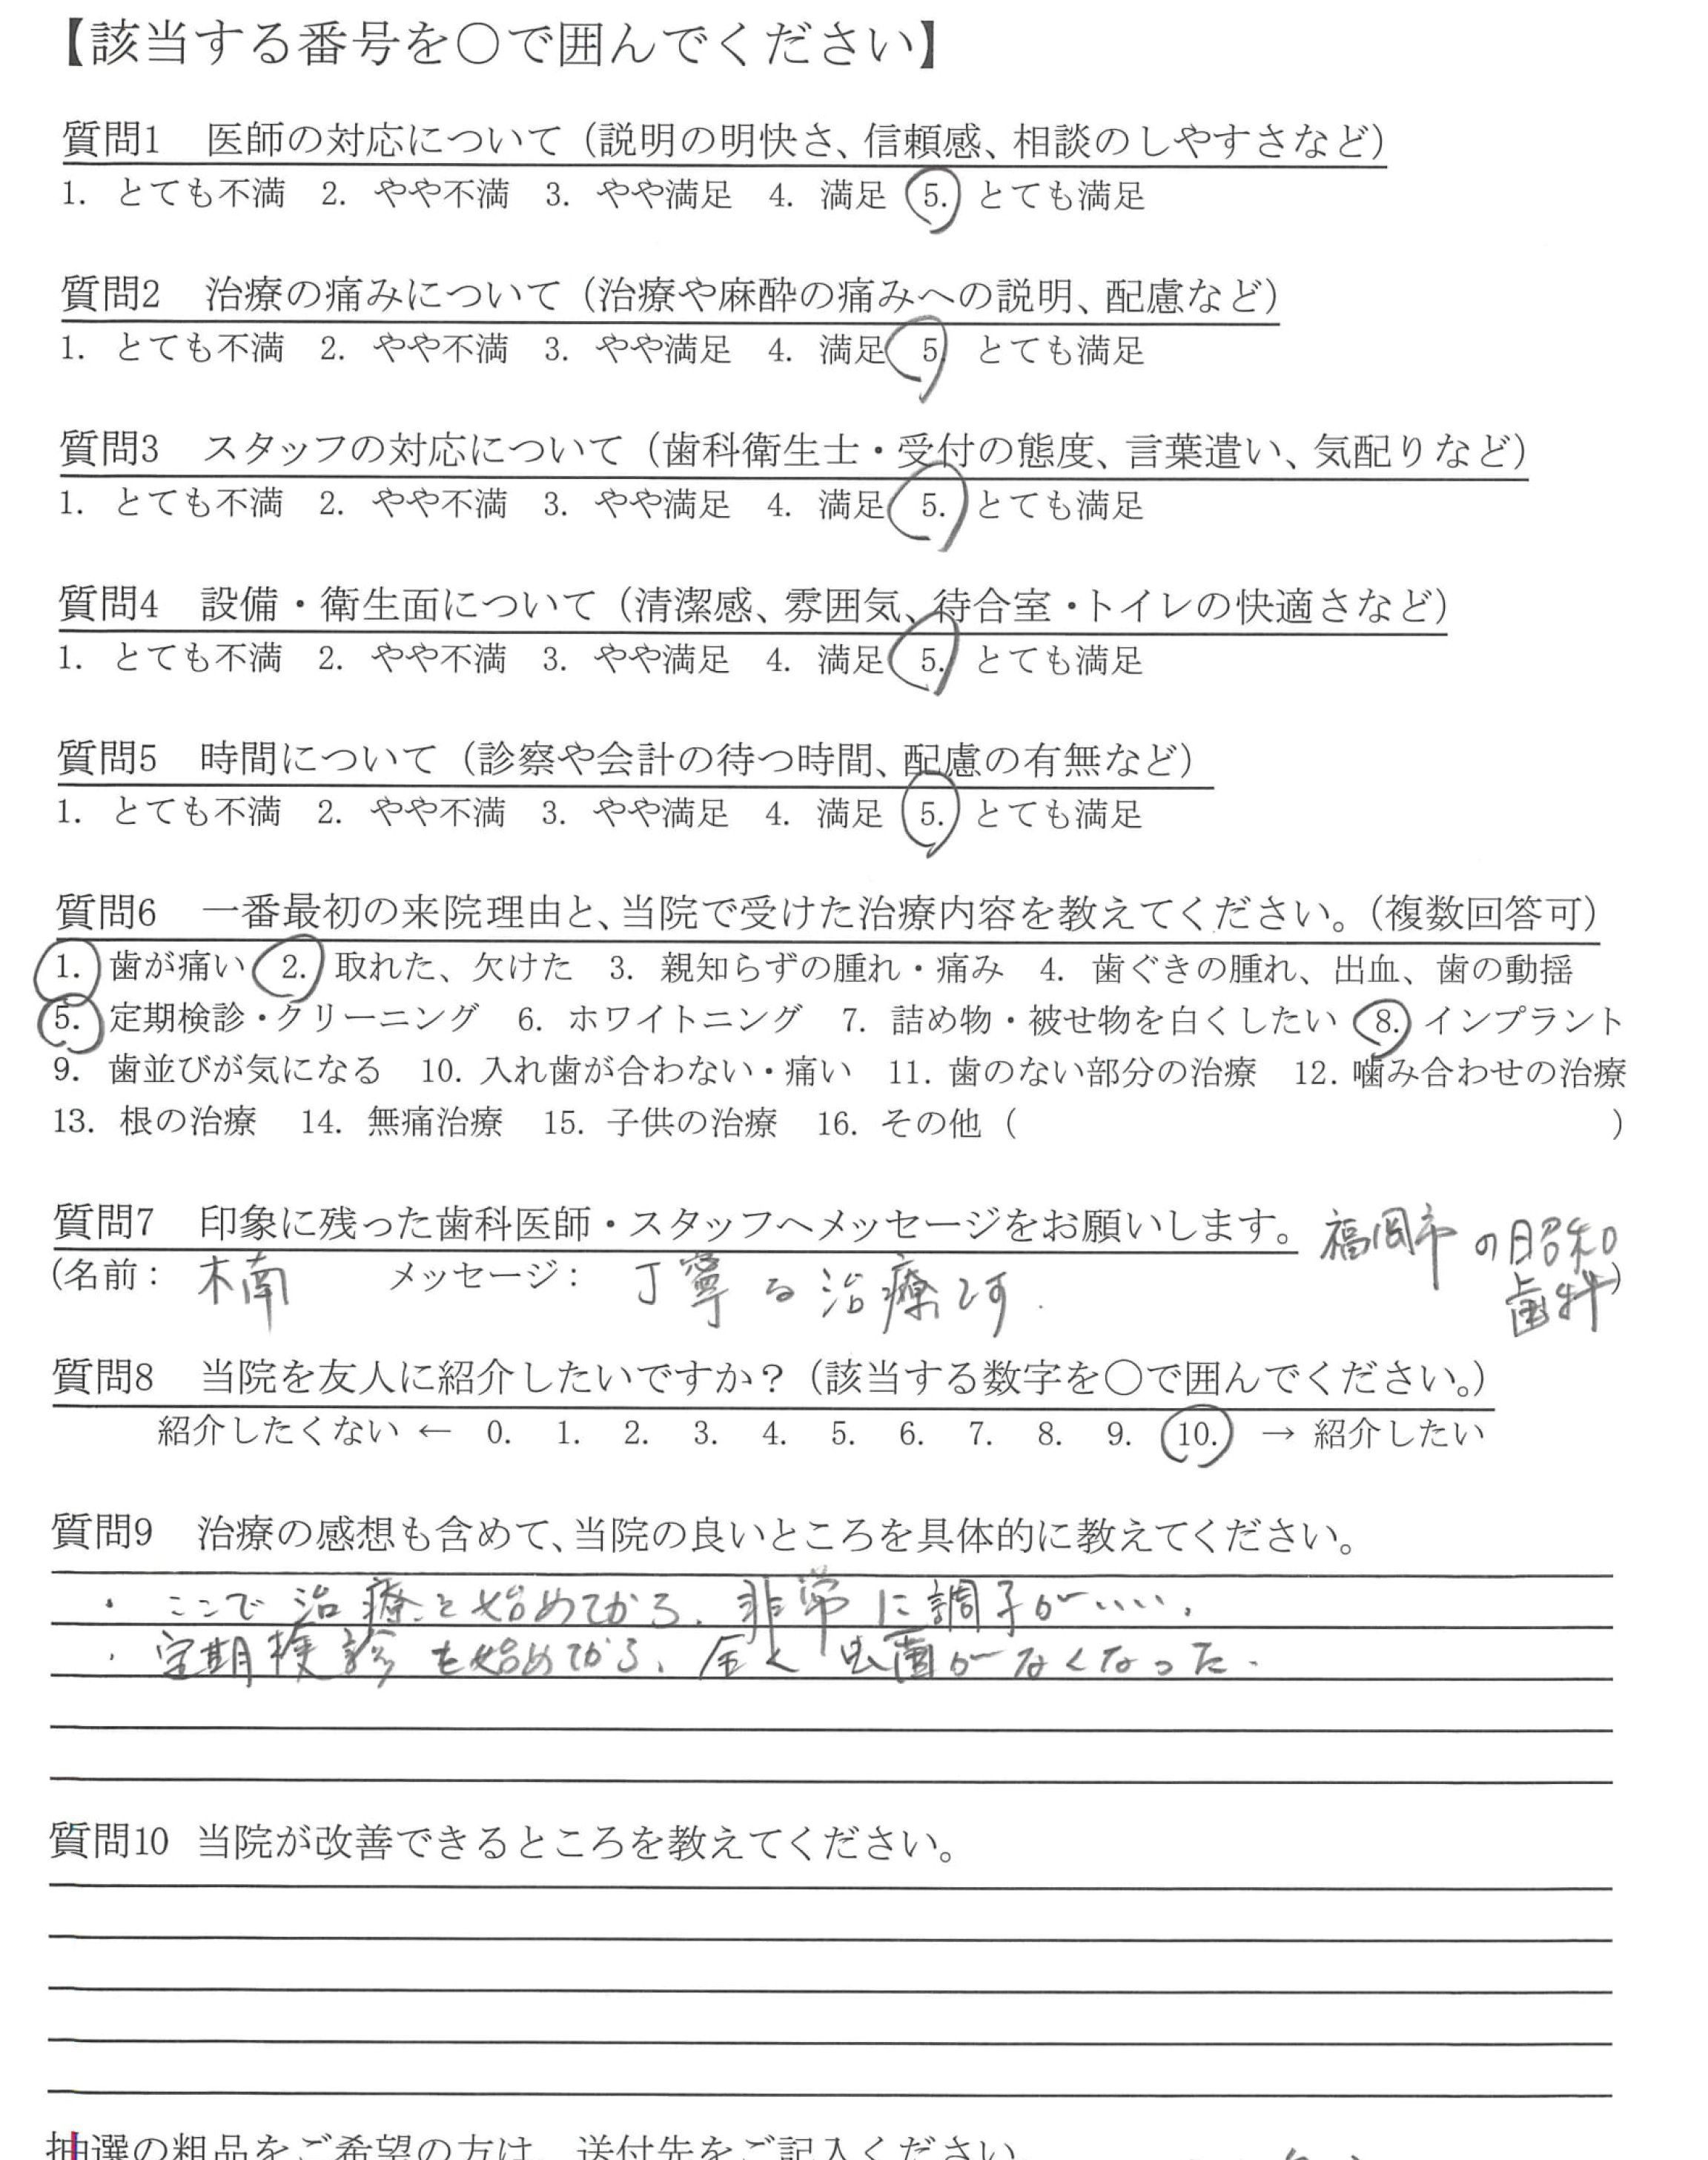 【該当する番号を〇で囲んでください】
質問1　医師の対応について（説明の明快さ、信頼感、相談のしやすさなど）
1. とても不満　2. やや不満　3. やや満足　4. 満足　5. とても満足
質問2　治療の痛みについて（治療や麻酔の痛みへの説明、配慮など）
1. とても不満　2. やや不満　3. やや満足　4. 満足　5. とても満足
質問3　スタッフの対応について（歯科衛生士・受付の態度、言葉遣い、気配りなど）
1. とても不満　2. やや不満　3. やや満足　4. 満足　5. とても満足
質問4　設備・衛生面について（清潔感、雰囲気、待合室・トイレの快適さなど）
1. とても不満　2. やや不満　3. やや満足　4. 満足　5. とても満足
質問5　時間について（診察や会計の待つ時間、配慮の有無など）
1. とても不満　2. やや不満　3. やや満足　4. 満足　5. とても満足
質問6　一番最初の来院理由と、当院で受けた治療内容を教えてください。（複数回答可）
1. 歯が痛い　2. 取れた、欠けた　3. 親知らずの腫れ・痛み　4. 歯ぐきの腫れ、出血、歯の動揺
5. 定期検診・クリーニング　6. ホワイトニング　7. 詰め物・被せ物を白くしたい　8. インプラント
9. 歯並びが気になる　10. 入れ歯が合わない・痛い　11. 歯のない部分の治療　12. 噛み合わせの治療
13. 根の治療　14. 無痛治療　15. 子供の治療　16. その他（　　　）
質問7　印象に残った歯科医師・スタッフへメッセージをお願いします。 福岡市の昭和
（名前： 木南　メッセージ： 丁寧な治療です. 歯科）
質問8　当院を友人に紹介したいですか？（該当する数字を〇で囲んでください。）
紹介したくない ← 0. 1. 2. 3. 4. 5. 6. 7. 8. 9. 10. → 紹介したい
質問9　治療の感想も含めて、当院の良いところを具体的に教えてください。
・ここで治療を始めてから、非常に調子がいい、
・定期検診を始めてから、全く虫歯がなくなった.
質問10 当院が改善できるところを教えてください。
抽選の粗品をご希望の方は、送付先をご記入ください